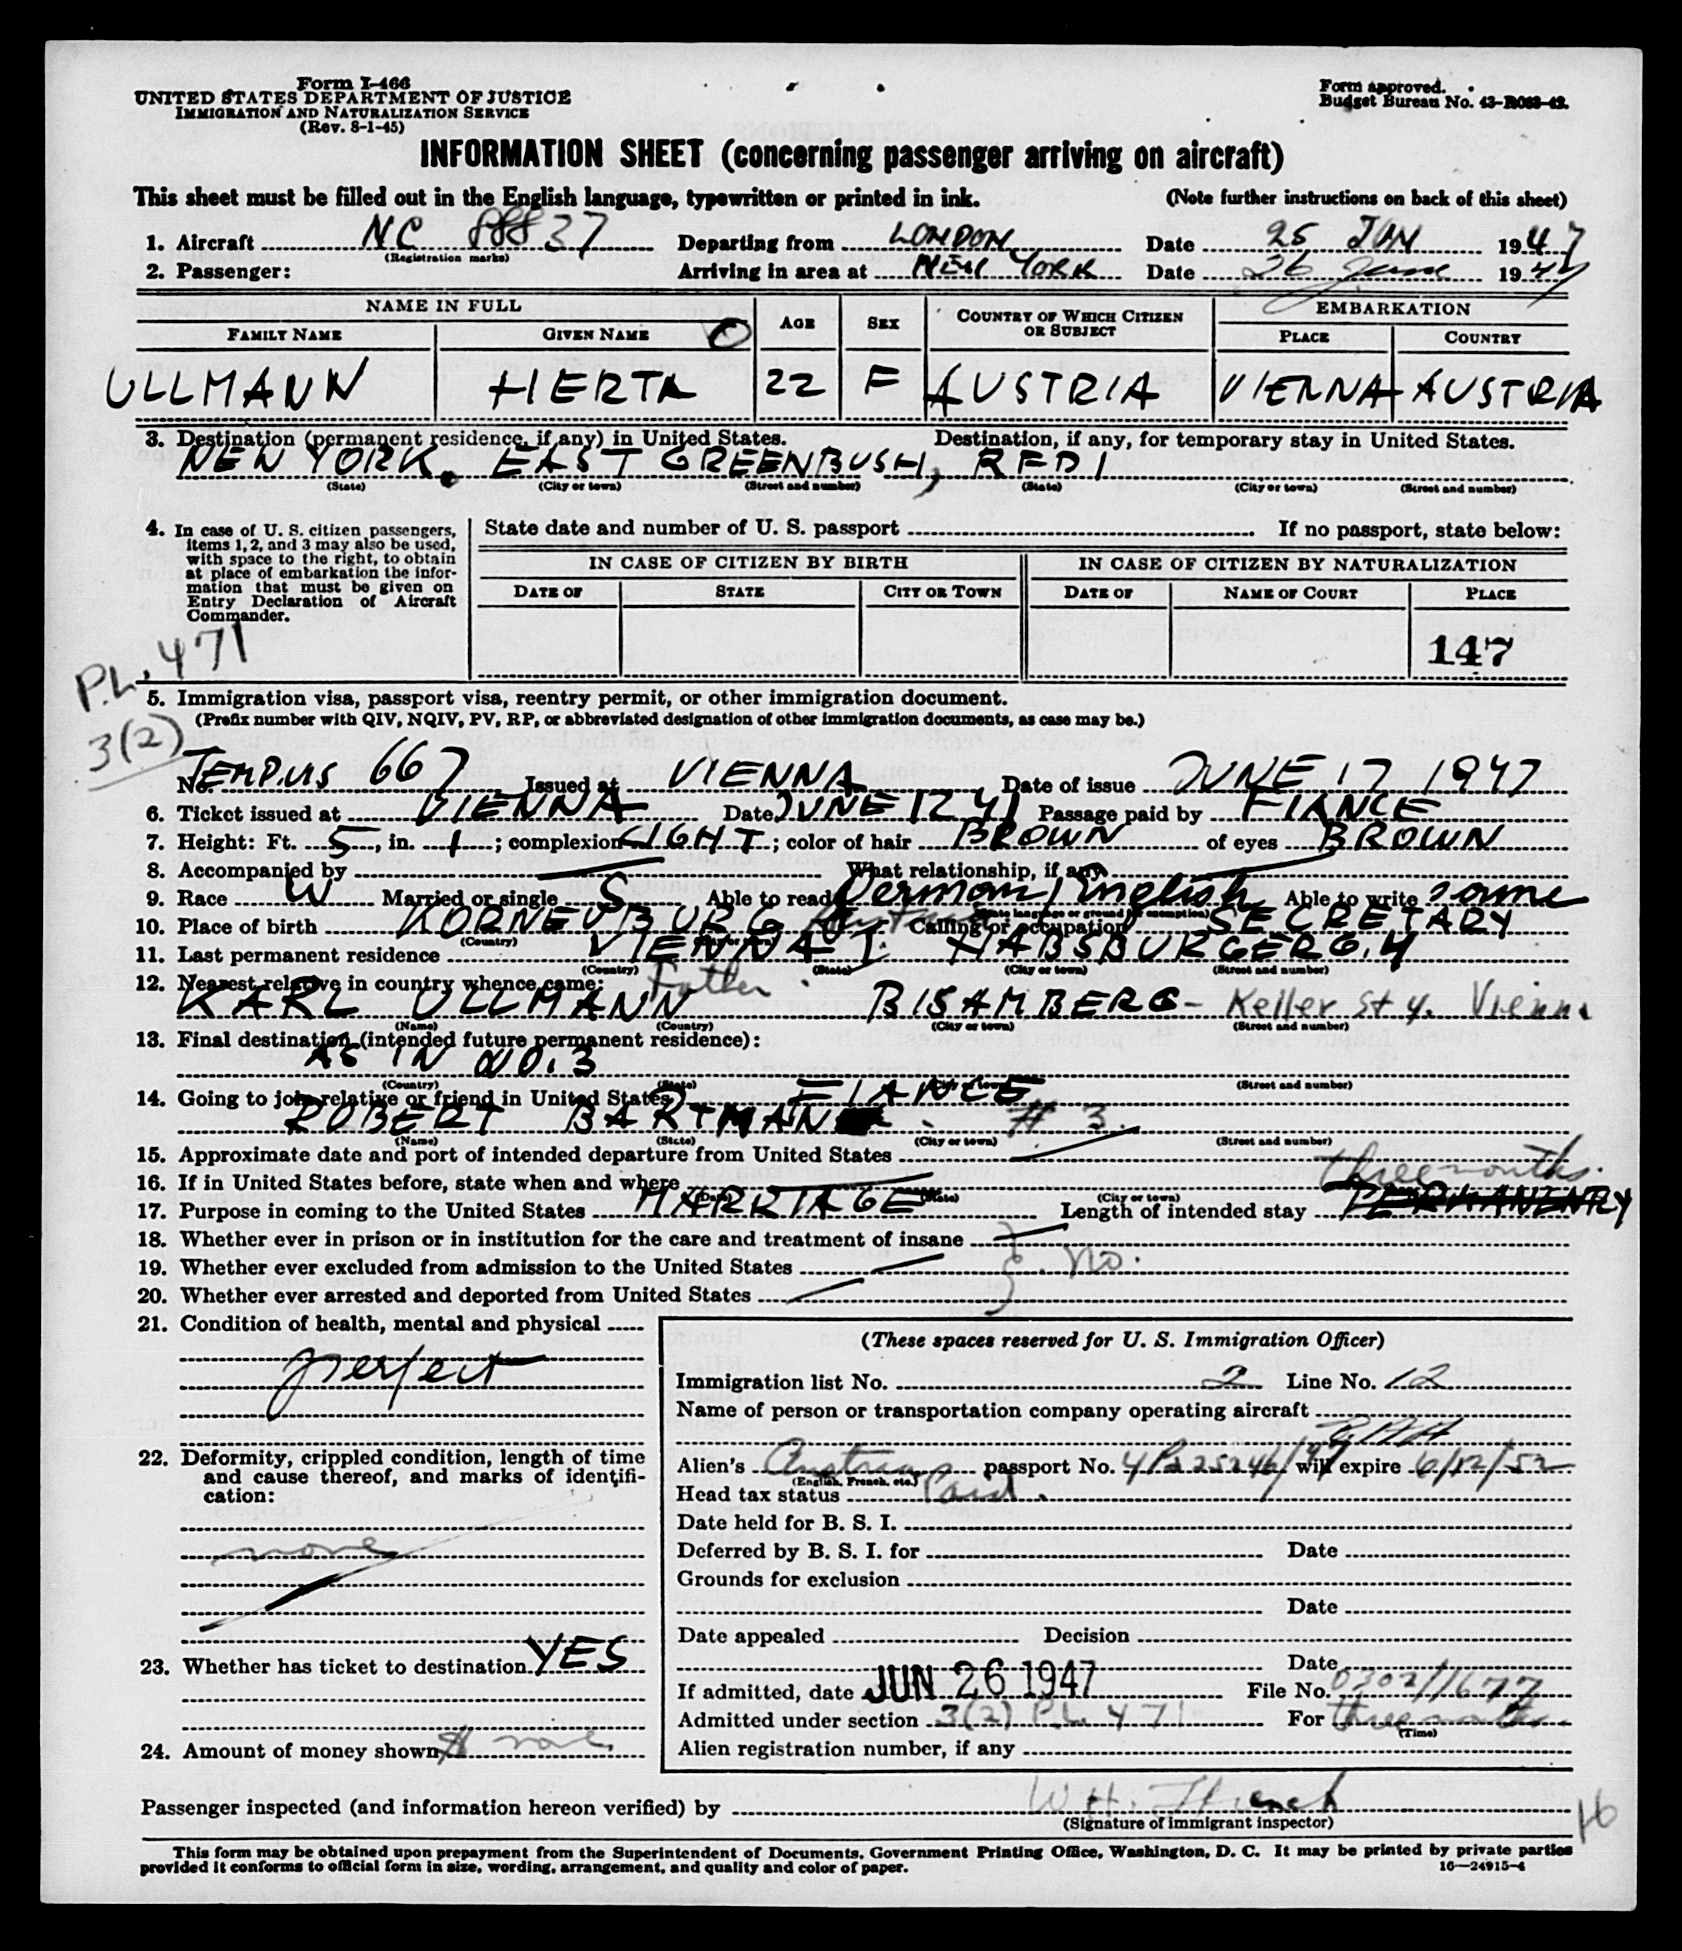 Form I-466
UNITED STATES DEPARTMENT OF JUSTICE
IMMIGRATION AND NATURALIZATION SERVICE
(Rev. 8-1-45)
Form approved.
Budget Bureau No. 43-R063-42.
INFORMATION SHEET (concerning passenger arriving on aircraft)
This sheet must be filled out in the English language, typewritten or printed in ink. (Note further instructions on back of this sheet)
1. Aircraft NC 88837 Departing from LONDON Date 25 JUN 1947
(Registration marks)
2. Passenger: Arriving in area at NEW YORK Date 26 June 1947
NAME IN FULL AGE SEX COUNTRY OF WHICH CITIZEN OR SUBJECT EMBARKATION
FAMILY NAME GIVEN NAME PLACE COUNTRY
ULLMANN HERTA 22 F AUSTRIA VIENNA AUSTRIA
3. Destination (permanent residence, if any) in United States. Destination, if any, for temporary stay in United States.
NEW YORK, EAST GREENBUSH, RFD 1
(State) (City or town) (Street and number) (State) (City or town) (Street and number)
4. In case of U. S. citizen passengers, items 1, 2, and 3 may also be used, with space to the right, to obtain at place of embarkation the information that must be given on Entry Declaration of Aircraft Commander.
State date and number of U. S. passport If no passport, state below:
IN CASE OF CITIZEN BY BIRTH IN CASE OF CITIZEN BY NATURALIZATION
DATE OF STATE CITY OR TOWN DATE OF NAME OF COURT PLACE
147
P.L. 471
3(2)
5. Immigration visa, passport visa, reentry permit, or other immigration document.
(Prefix number with QIV, NQIV, PV, RP, or abbreviated designation of other immigration documents, as case may be.)
No. TEMP.VIS 667 Issued at VIENNA Date of issue JUNE 17 1947
6. Ticket issued at VIENNA Date JUNE 12 41 Passage paid by FIANCE
7. Height: Ft. 5, in. 1; complexion LIGHT; color of hair BROWN of eyes BROWN
8. Accompanied by What relationship, if any
9. Race W Married or single S Able to read German, English Able to write same
(State language or ground for exemption)
10. Place of birth KORNEUBURG Austria Calling or occupation SECRETARY
(Country) (City or town)
11. Last permanent residence VIENNA I HABSBURGERG. 4
(Country) (State) (City or town) (Street and number)
12. Nearest relative in country whence came: Father.
KARL ULLMANN BISAMBERG - Keller St 4. Vienna
(Name) (Country) (City or town) (Street and number)
13. Final destination (intended future permanent residence):
AS IN NO. 3
(Country) (State) (City or town) (Street and number)
14. Going to join relative or friend in United States FIANCE
ROBERT BARTMAN # 3.
(Name) (State) (City or town) (Street and number)
15. Approximate date and port of intended departure from United States
three months.
16. If in United States before, state when and where
(Date) (State) (City or town)
17. Purpose in coming to the United States MARRIAGE Length of intended stay PERMANENTLY
18. Whether ever in prison or in institution for the care and treatment of insane
19. Whether ever excluded from admission to the United States No.
20. Whether ever arrested and deported from United States
21. Condition of health, mental and physical
perfect
22. Deformity, crippled condition, length of time and cause thereof, and marks of identification:
none
23. Whether has ticket to destination YES
24. Amount of money shown $ none
(These spaces reserved for U. S. Immigration Officer)
Immigration list No. 2 Line No. 12
Name of person or transportation company operating aircraft
Alien's Austrian passport No. 4Ps 25246/47 will expire 6/12/52
(English, French, etc.)
Head tax status Paid.
Date held for B. S. I.
Deferred by B. S. I. for Date
Grounds for exclusion
Date
Date appealed Decision
Date
If admitted, date JUN 26 1947 File No. 0302/11677
Admitted under section 3(2) P.L. 471 For three months
(Time)
Alien registration number, if any
Passenger inspected (and information hereon verified) by W.H.
(Signature of immigrant inspector)
16
This form may be obtained upon prepayment from the Superintendent of Documents, Government Printing Office, Washington, D. C. It may be printed by private parties
provided it conforms to official form in size, wording, arrangement, and quality and color of paper. 16—24915-4